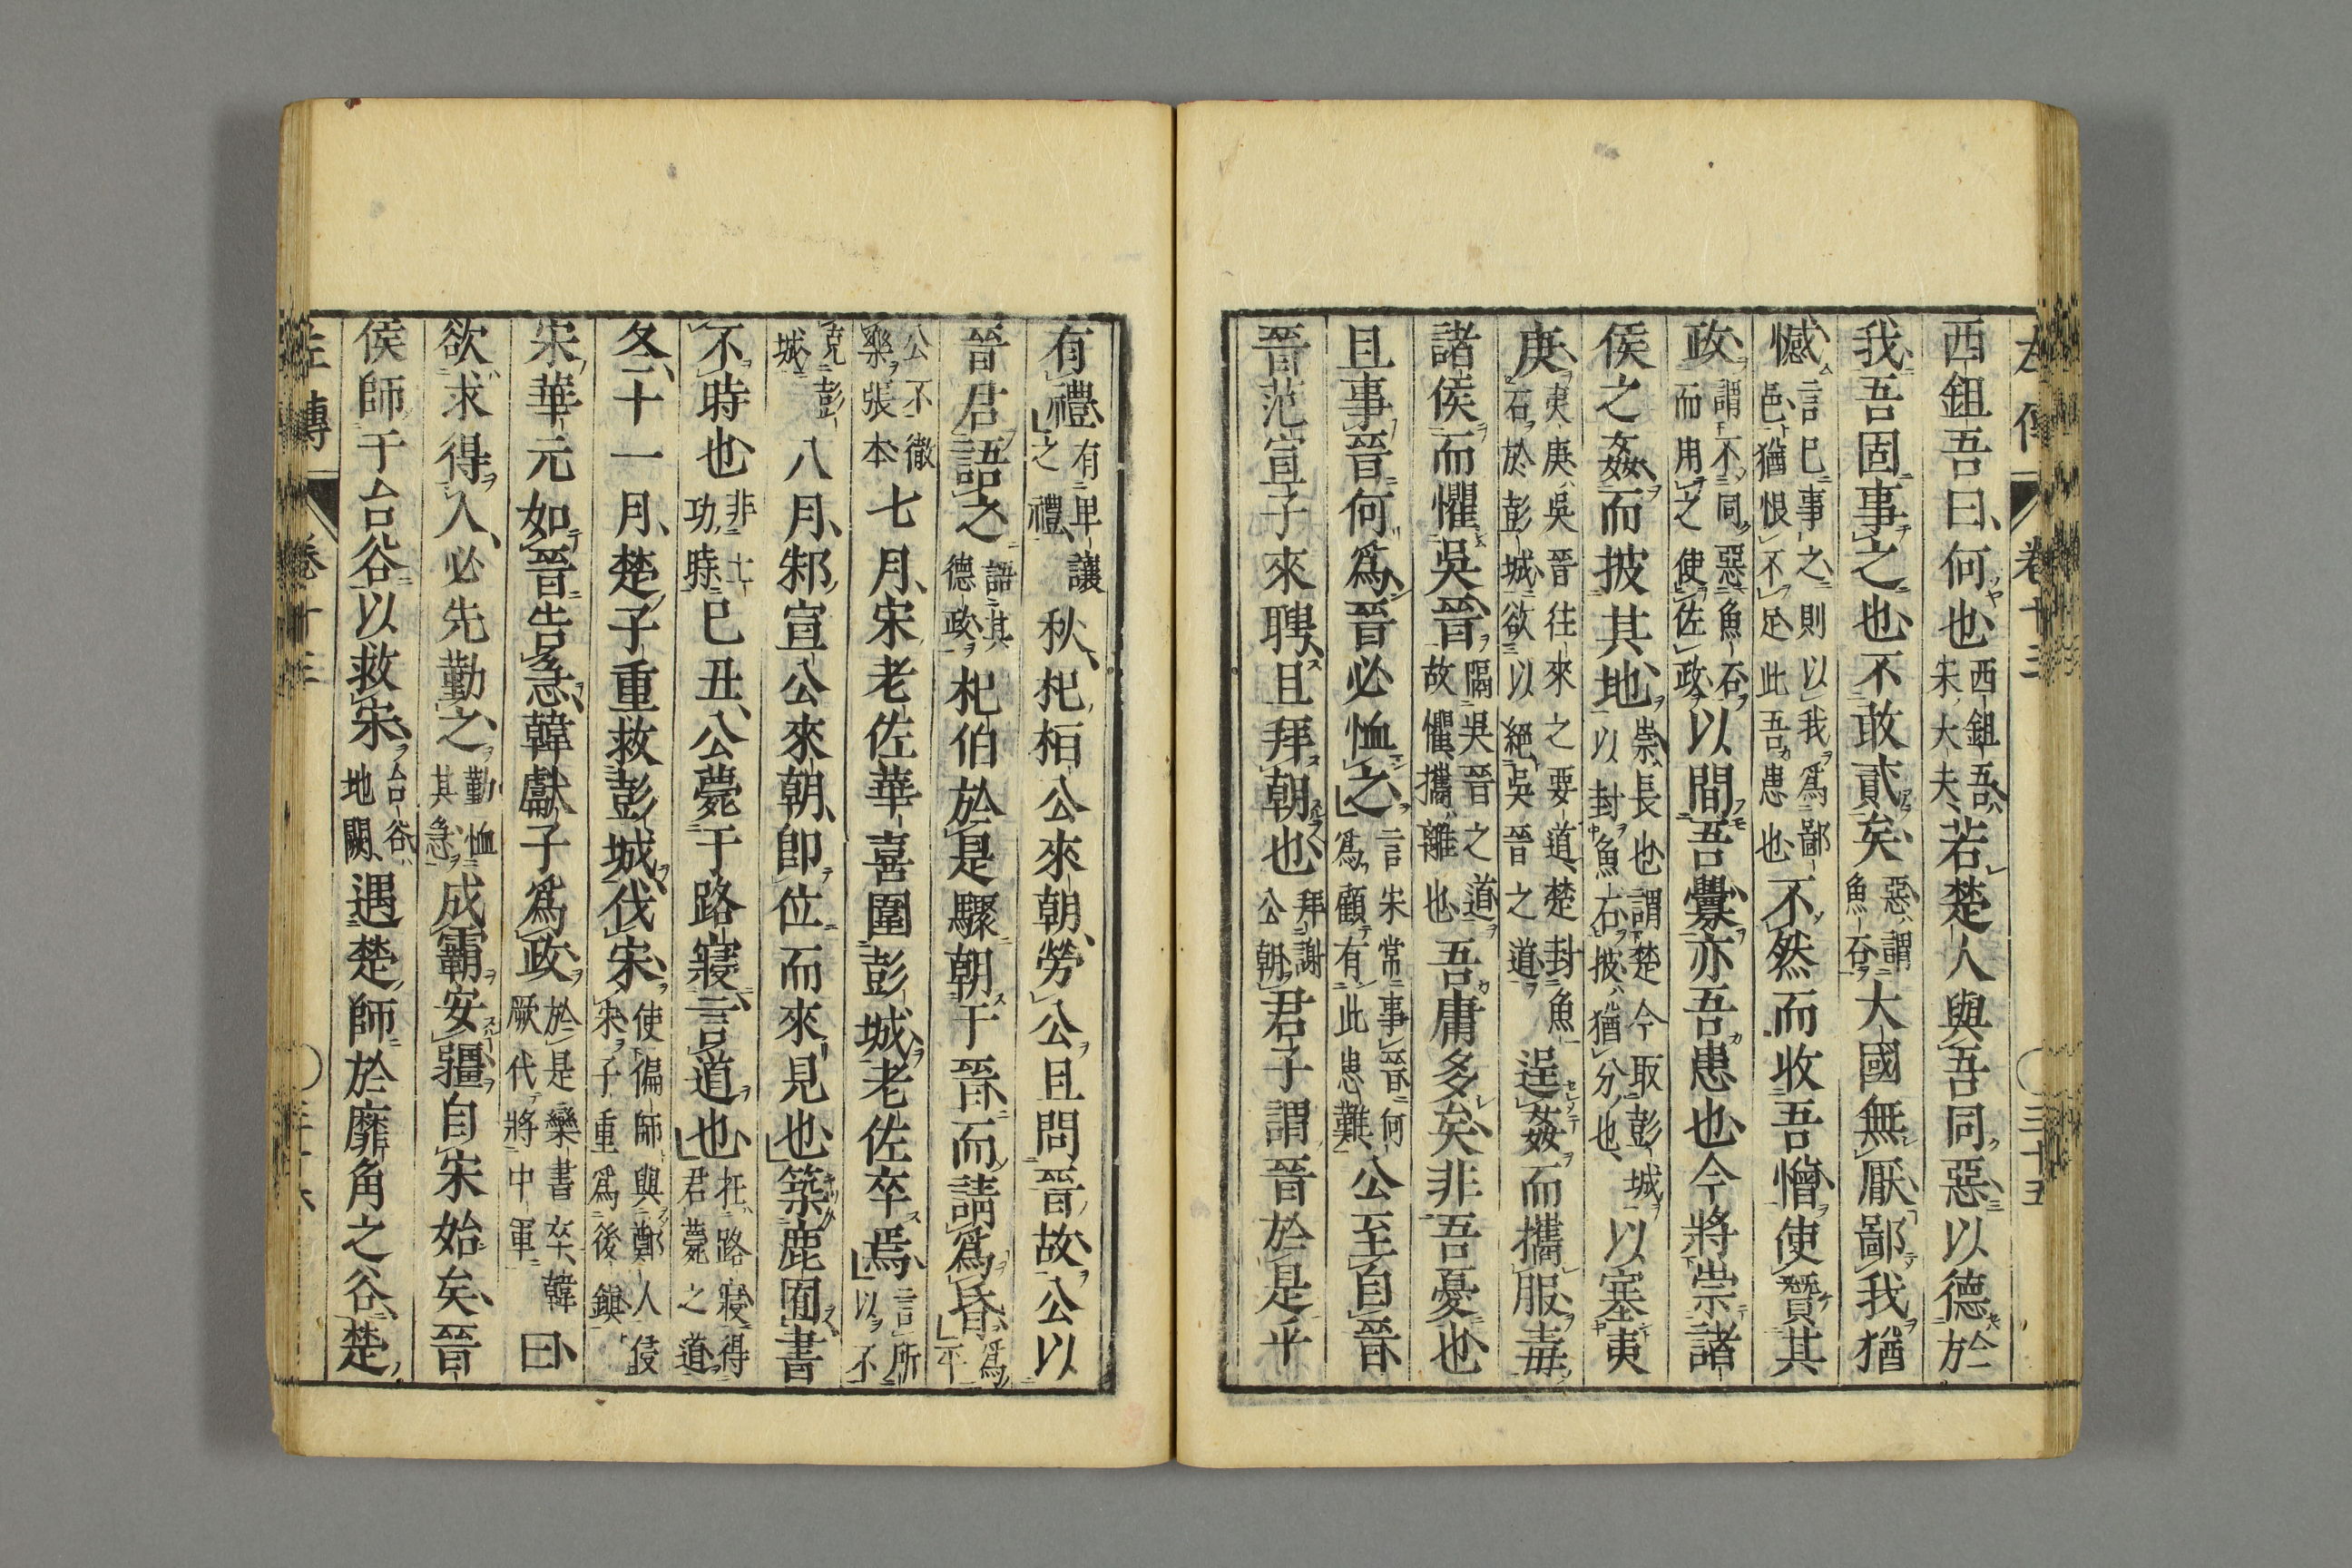 左傳 卷十三 三十五
西鉏吾曰何也西鉏吾宋大夫若楚人與吾同惡以德於
我吾固事之也不敢貳矣惡謂魚石大國無厭鄙我猶
憾言已事之則以我爲鄙邑猶恨不足此吾患也不然而收吾憎使贊其
政謂不同惡魚石而用之使佐政以間吾釁亦吾患也今將崇諸
侯之姦而披其地崇長也謂楚今取彭城以封魚石披猶分也以塞夷
庚夷庚吳晉往來之要道楚封魚石於彭城欲以絕吳晉之道逞姦而攜服毒
諸侯而懼吳晉隔吳晉之道故懼攜離也吾庸多矣非吾憂也
且事晉何爲晉必恤之言宋常事晉何爲顧有此患難公至自晉
晉范宣子來聘且拜朝也拜謝公朝君子謂晉於是乎
有禮有卑讓之禮秋杞桓公來朝勞公且問晉故公以
晉君語之語其德政杞伯於是驟朝于晉而請爲昏爲平
公不徹樂張本七月宋老佐華喜圍彭城老佐卒焉言所以不
克彭城八月邾宣公來朝即位而來見也築鹿囿書
不時也非土功時已丑公薨于路寢言道也在路寢得君薨之道
冬十一月楚子重救彭城伐宋使偏師與鄭人侵宋子重爲後鎮
宋華元如晉告急韓獻子爲政於是欒書卒韓厥代將中軍曰
欲求得人必先勤之勤恤其急成霸安疆自宋始矣晉
侯師于台谷以救宋台谷地闕遇楚師於靡角之谷楚
左傳 卷十三